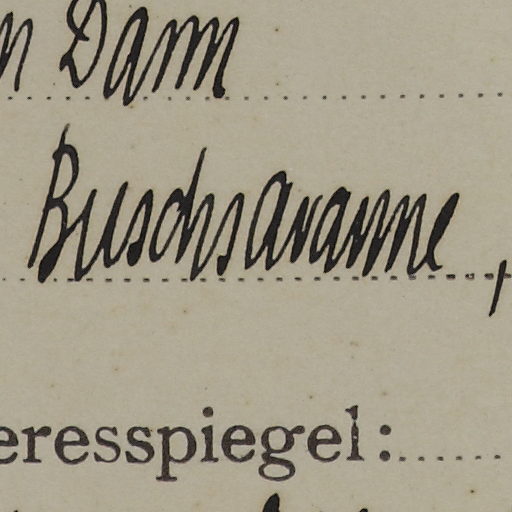 n Dann
Buschsavanne,
eresspiegel: